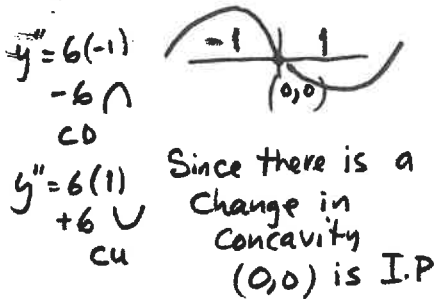 y" = 6(-1)
-6 ∩
CD
y" = 6(1)
+6 ∪
CU
-1 1
(0,0)
Since there is a
change in
concavity
(0,0) is I.P